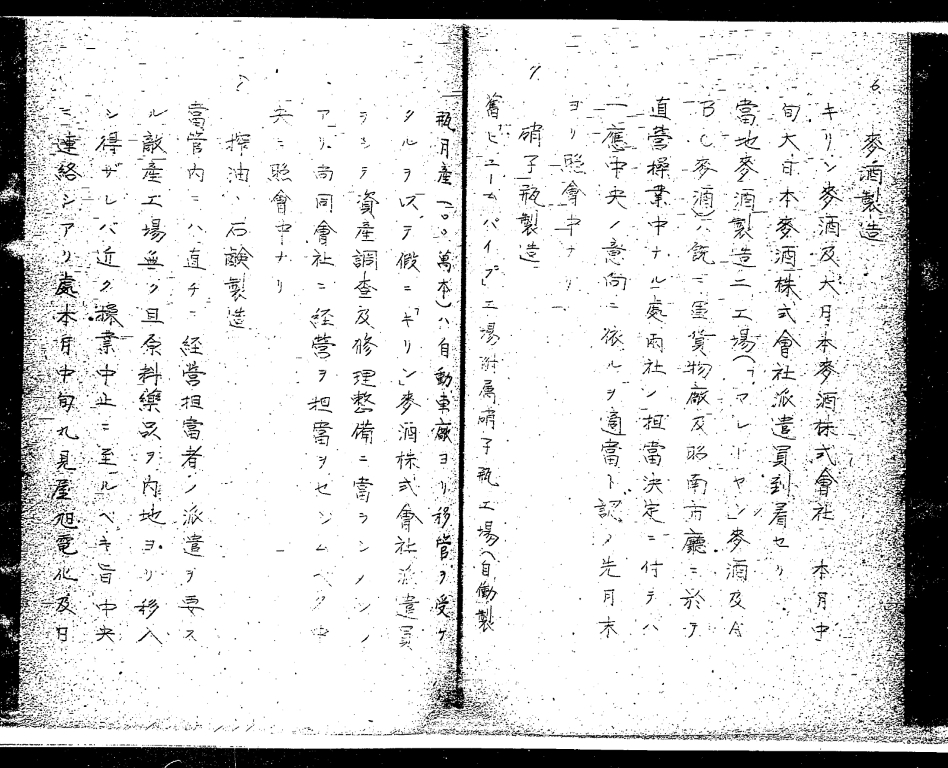 6.
麥酒製造
キリン麥酒及大日本麥酒株式會社 本月中
旬大日本麥酒株式會社派遣員到着セリ
當地麥酒製造二工場(「マレーヤン」麥酒及A
BC麥酒)ハ既ニ軍貨物廠及昭南市廳ニ於テ
直營操業中ナル處兩社ノ担當決定ニ付テハ
一應中央ノ意向ニ依ルヲ適當ト認メ先月末
ヨリ照會中ナリ
7
硝子瓶製造
舊「ヒユームパイプ」工場附属硝子瓶工場(自働製
瓶月産一〇〇萬本)ハ自動車廠ヨリ移管ヲ受ケ
タルヲ以テ假ニ「キリン」麥酒株式會社派遣員
ヲシテ資産調査及修理整備ニ當ラシメ
アリ尚同會社ニ経營ヲ担當セシムベク中
央ニ照會中ナリ
搾油、石鹸製造
當管内ニハ直チニ経營担當者ノ派遣ヲ要ス
ル敵産工場無ク且原料藥品ヲ内地ヨリ移入
シ得ザレバ近ク操業中止ニ至ルベキ旨中央
ニ連絡シアリ處本月中旬丸見屋旭電化及日